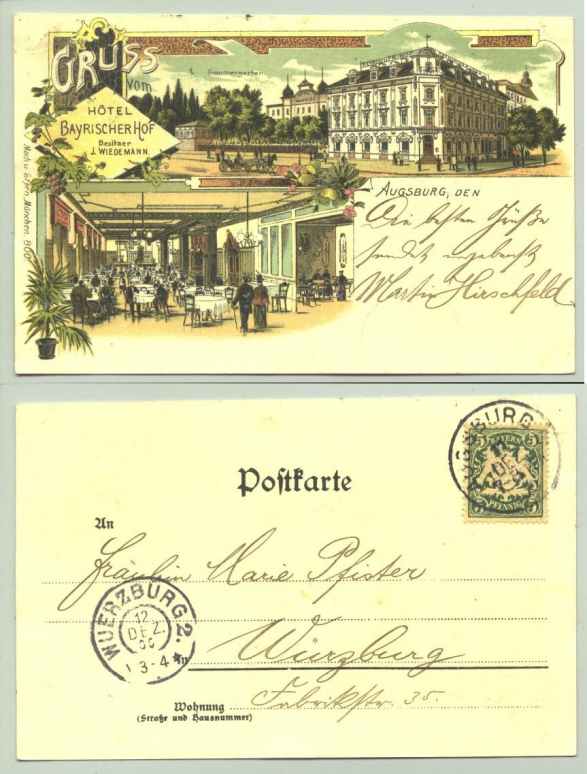 GRUSS
vom
HÔTEL
BAYRISCHER HOF
Besitzer
J. WIEDEMANN.
Sommergarten
AUGSBURG, DEN
Die besten Grüße
sendet ergebenst
Martin Hirschfeld
München
AUGSBURG
BAYERN
5 5
PFENNIG
Postkarte
An
Fräulein Marie Pfister
WUERZBURG 2.
12
DEZ.
3-4
in Würzburg
Wohnung
(Straße und Hausnummer)
Fabrikstr. 35.